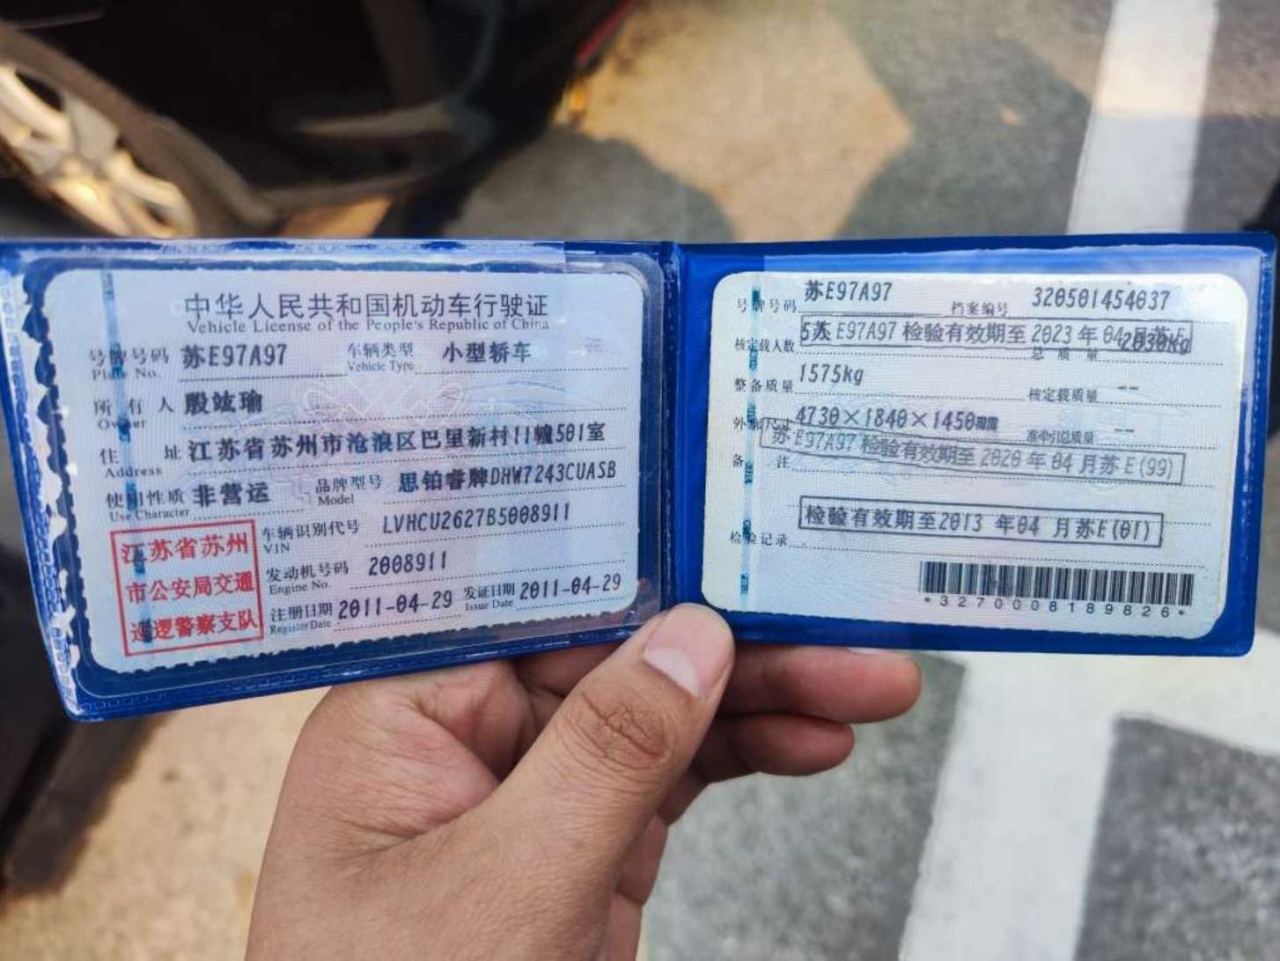 中华人民共和国机动车行驶证
Vehicle License of the People's Republic of China
号牌号码 苏E97A97 车辆类型 小型轿车
Plate No. Vehicle Type
所有人 殷竑瑜
Owner
住址 江苏省苏州市沧浪区巴里新村11幢501室
Address
使用性质 非营运 品牌型号 思铂睿牌DHW7243CUASB
Use Character Model
江苏省苏州
市公安局交通
巡逻警察支队
车辆识别代号 LVHCU2627B5008911
VIN
发动机号码 2008911
Engine No.
注册日期 2011-04-29 发证日期 2011-04-29
Register Date Issue Date
号牌号码 苏E97A97 档案编号 320501454037
核定载人数 5人 总质量 2030kg
苏E97A97 检验有效期至 2023 年 04 月苏E
整备质量 1575kg 核定载质量 --
外廓尺寸 4730×1840×1450mm 准牵引总质量 --
苏E97A97 检验有效期至 2020 年 04 月苏E(99)
备注
检验有效期至2013 年04 月苏E(01)
检验记录
*3270008189826*